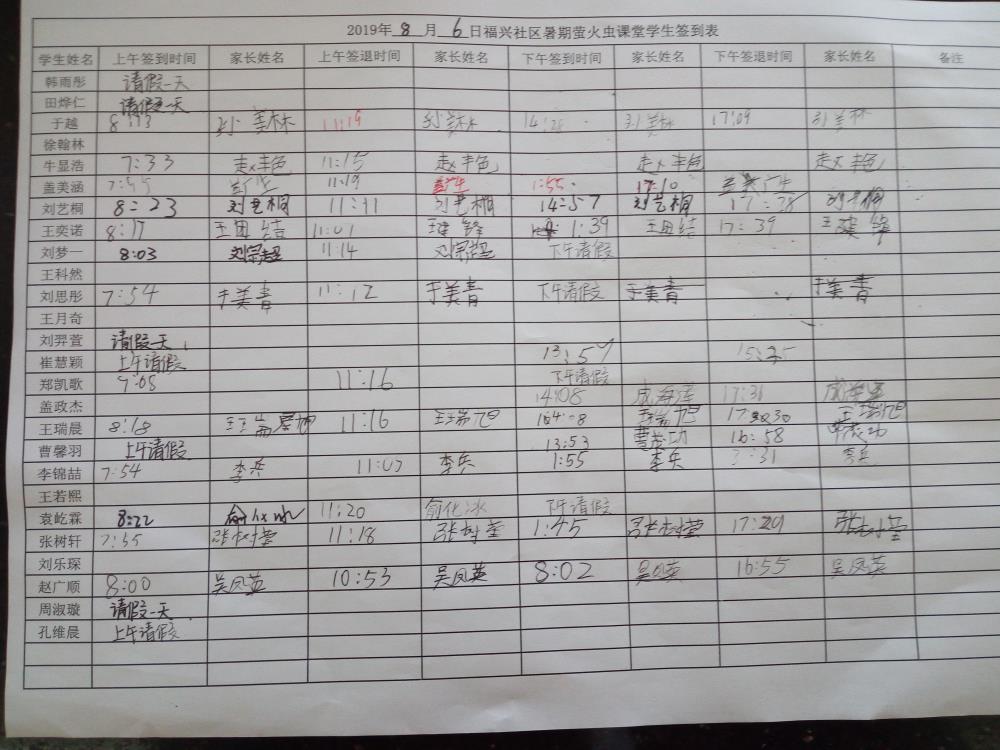 2019年 8 月 6 日福兴社区暑期萤火虫课堂学生签到表
学生姓名 上午签到时间 家长姓名 上午签退时间 家长姓名 下午签到时间 家长姓名 下午签退时间 家长姓名 备注
韩雨彤 请假一天
田烨仁 请假一天
于越 8:13 孙美林 11:19 孙美林 14:28 孙美林 17:09 孙美林
徐翰林
牛显浩 7:33 赵丰色 11:15 赵丰色 赵丰色 赵丰色
盖美涵 7:55 11:19 1:55 17:10
刘艺桐 8:23 刘艺桐 11:11 刘艺桐 14:57 刘艺桐 17:28 刘艺桐
王奕诺 8:17 王田结 11:01 王建锋 1:39 王田结 17:39 王建锋
刘梦一 8:03 刘宗超 11:14 刘宗超 下午请假
王科然
刘思彤 7:54 于美青 11:12 于美青 下午请假 于美青 于美青
王月奇
刘羿萱 请假一天
崔慧颖 上午请假 13:57 15:35
郑凯歌 7:05 11:16 下午请假
盖政杰 14:08 成海莲 17:31 成海莲
王瑞晨 8:18 11:16 王瑞旭 14:08 王瑞旭 17:30 王瑞旭
曹馨羽 上午请假 13:53 曹茂功 16:58 曹茂功
李锦喆 7:54 李兵 11:07 李兵 1:55 李兵 :31 李兵
王若熙
袁屹霖 8:22 俞化冰 11:20 俞化冰 下午请假
张树轩 7:55 张树莹 11:18 张树莹 1:45 张树莹 17:29 张树莹
刘乐琛
赵广顺 8:00 吴凤英 10:53 吴凤英 8:02 吴凤英 16:55 吴凤英
周淑璇 请假一天
孔维晨 上午请假